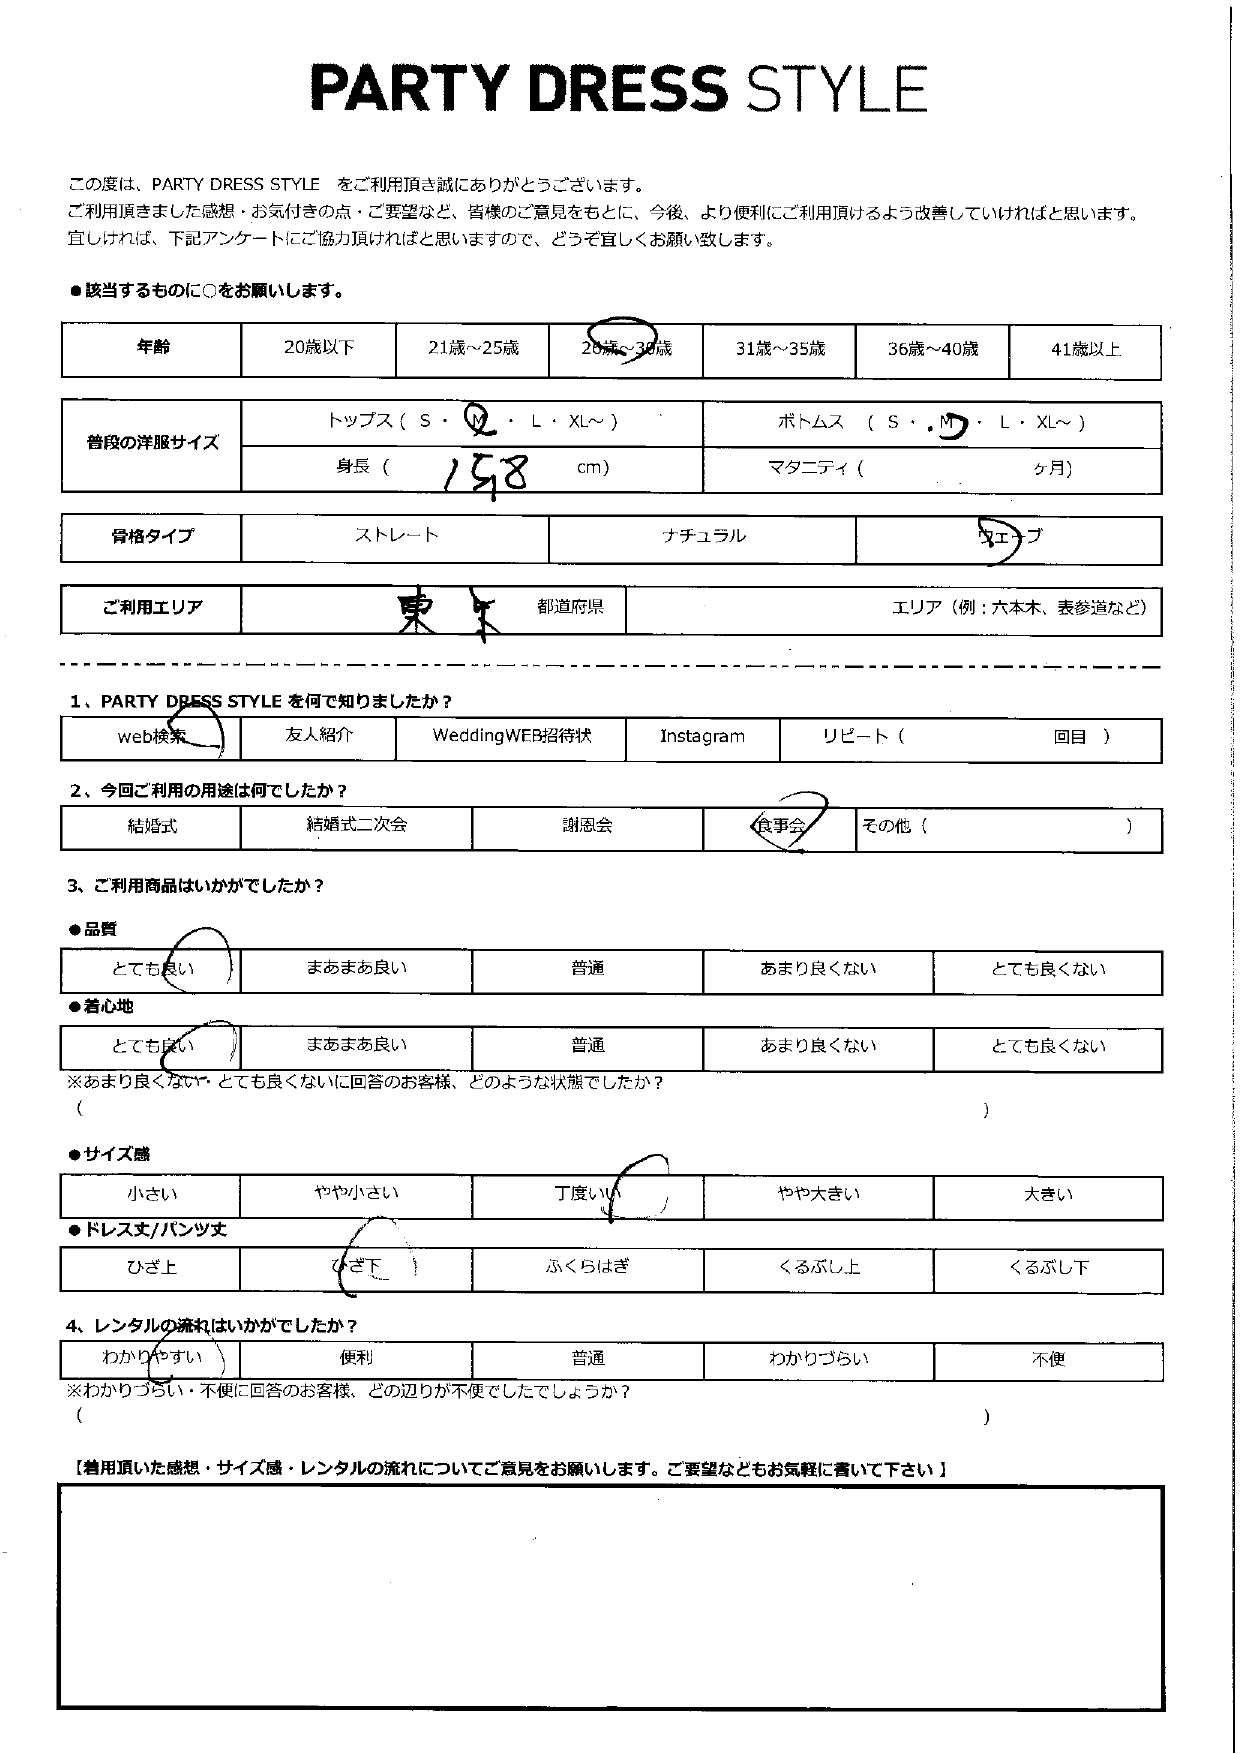 PARTY DRESS STYLE
この度は、PARTY DRESS STYLE をご利用頂き誠にありがとうございます。
ご利用頂きました感想・お気付きの点・ご要望など、皆様のご意見をもとに、今後、より便利にご利用頂けるよう改善していければと思います。
宜しければ、下記アンケートにご協力頂ければと思いますので、どうぞ宜しくお願い致します。
●該当するものに○をお願いします。
年齢 20歳以下 21歳～25歳 26歳～30歳 31歳～35歳 36歳～40歳 41歳以上
普段の洋服サイズ トップス ( S ・ M ・ L ・ XL～ ) ボトムス ( S ・ M ・ L ・ XL～ )
身長 ( 158 cm) マタニティ ( ヶ月)
骨格タイプ ストレート ナチュラル ウェーブ
ご利用エリア 東京 都道府県 エリア（例：六本木、表参道など）
1、PARTY DRESS STYLE を何で知りましたか？
web検索 友人紹介 WeddingWEB招待状 Instagram リピート ( 回目 )
2、今回ご利用の用途は何でしたか？
結婚式 結婚式二次会 謝恩会 食事会 その他 ( )
3、ご利用商品はいかがでしたか？
●品質
とても良い まあまあ良い 普通 あまり良くない とても良くない
●着心地
とても良い まあまあ良い 普通 あまり良くない とても良くない
※あまり良くない・とても良くないに回答のお客様、どのような状態でしたか？
( )
●サイズ感
小さい やや小さい 丁度いい やや大きい 大きい
●ドレス丈/パンツ丈
ひざ上 ひざ下 ふくらはぎ くるぶし上 くるぶし下
4、レンタルの流れはいかがでしたか？
わかりやすい 便利 普通 わかりづらい 不便
※わかりづらい・不便に回答のお客様、どの辺りが不便でしたでしょうか？
( )
【着用頂いた感想・サイズ感・レンタルの流れについてご意見をお願いします。ご要望などもお気軽に書いて下さい】